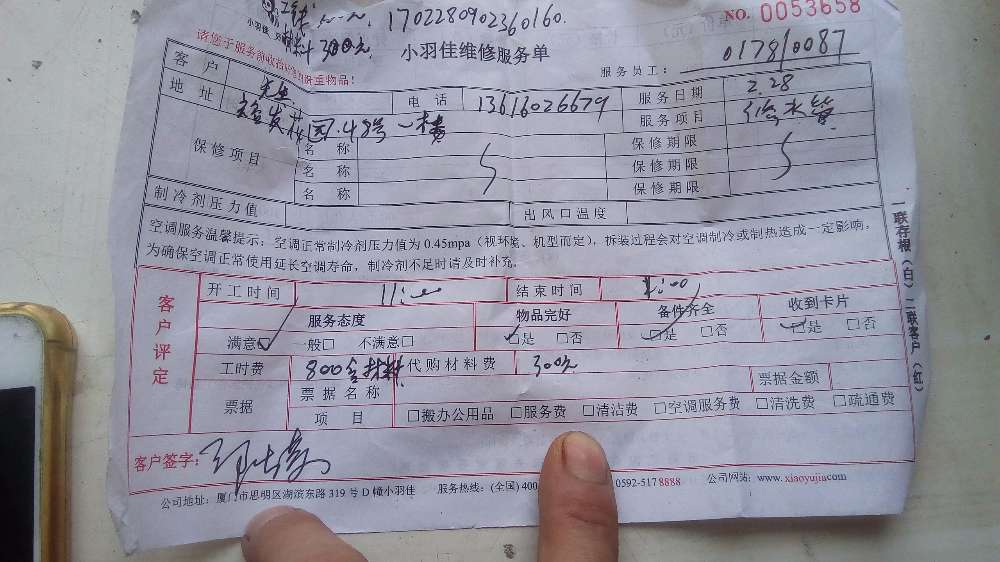 1702280902360160.
NO. 0053658
材料300元
小羽佳维修服务单
服务员工： 017810087
客户 电话 13616026679 服务日期 2.28
地址 福发花园.48号一楼 服务项目 修水管
保修项目 名称 保修期限
名称 保修期限
名称 保修期限
制冷剂压力值 出风口温度
空调服务温馨提示：空调正常制冷剂压力值为0.45mpa（视环境、机型而定），拆装过程会对空调制冷或制热造成一定影响，
为确保空调正常使用延长空调寿命，制冷剂不足时请及时补充。
客户评定
开工时间 结束时间
服务态度 物品完好 备件齐全 收到卡片
满意☑ 一般□ 不满意□ ☑是 □否 ☑是 □否 ☑是 □否
工时费 800含材料 代购材料费 300元
票据 票据名称 票据金额
项目 □搬办公用品 □服务费 □清洁费 □空调服务费 □清洗费 □疏通费
客户签字：
公司地址：厦门市思明区湖滨东路319号D幢小羽佳 服务热线：(全国) 400 0592-5178888 公司网站：www.xiaoyujia.com
一联存根（白）二联客户（红）